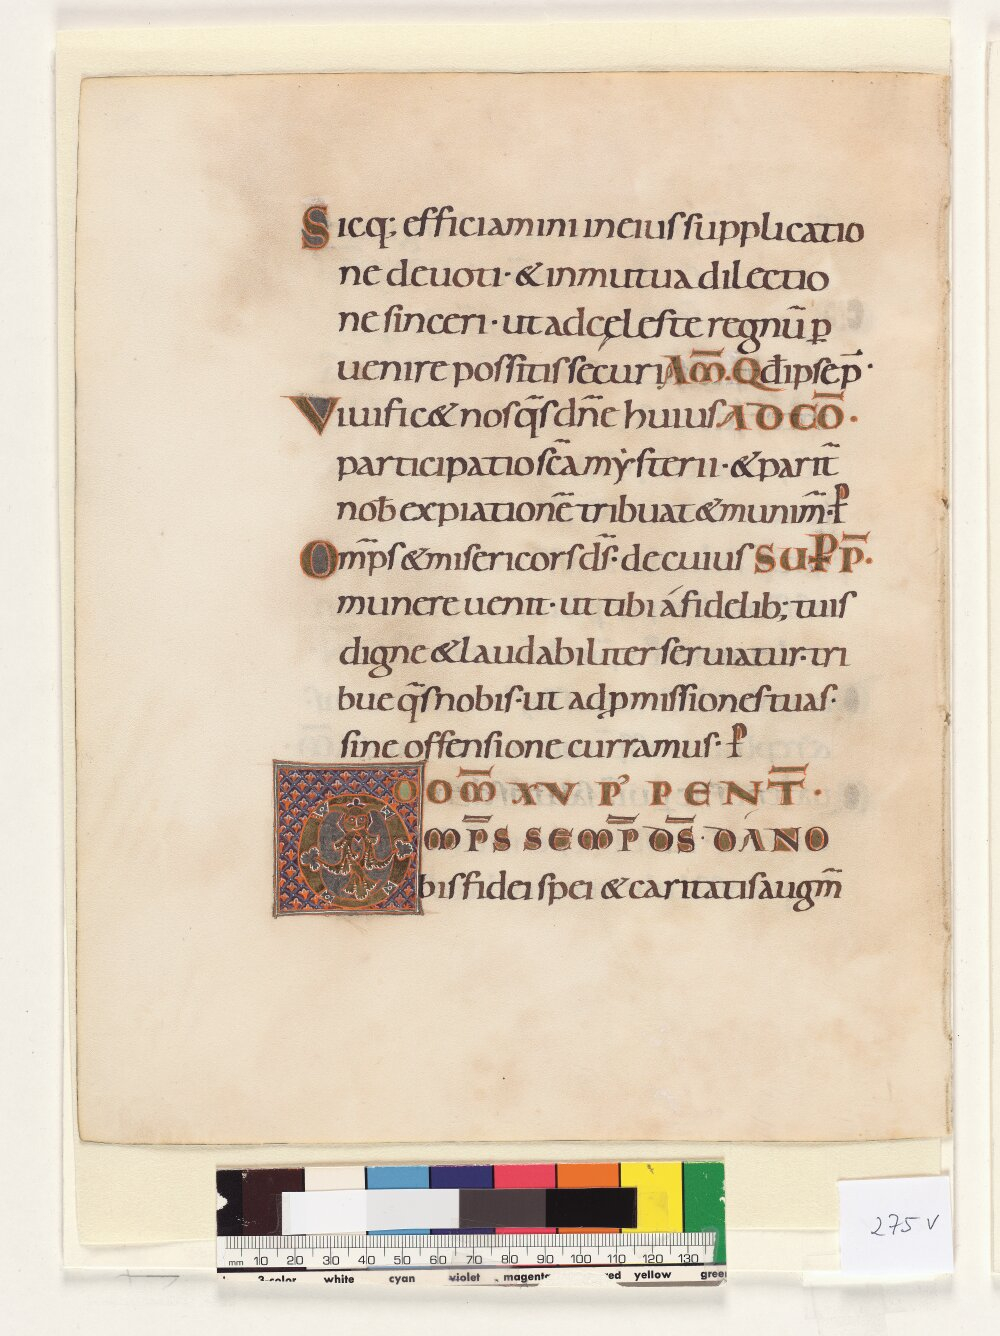 Sicq; efficiamini in eius supplicatio
ne deuoti· & in mutua dilectio
ne sinceri· ut ad cęleste regnū p̱
uenire possitis securi AM̄. Qd̄ ipse p̄·
Viuific& nos q̄s dn̄e huius AD CŌ·
participatio sc̄a mẏsterii· & parit̄
nob̄ expiationē tribuat & munim̄· P̱
Om̄ps & misericors ds̄· de cuius SUPP̄·
munere uenit· ut tibi á fidelib; tuis
digne & laudabiliter seruiatur· tri
bue q̄s nobis· ut ad ꝓmissiones tuas·
sine offensione curramus· P̱
DOM̄ XV P' PENT̄·
OMP̄S SEMP̄ DS̄· DA NO
bis fidei spei & caritatis augm̄
275 v
mm 10 20 30 40 50 60 70 80 90 100 110 120 130
3-color white cyan violet magenta red yellow green